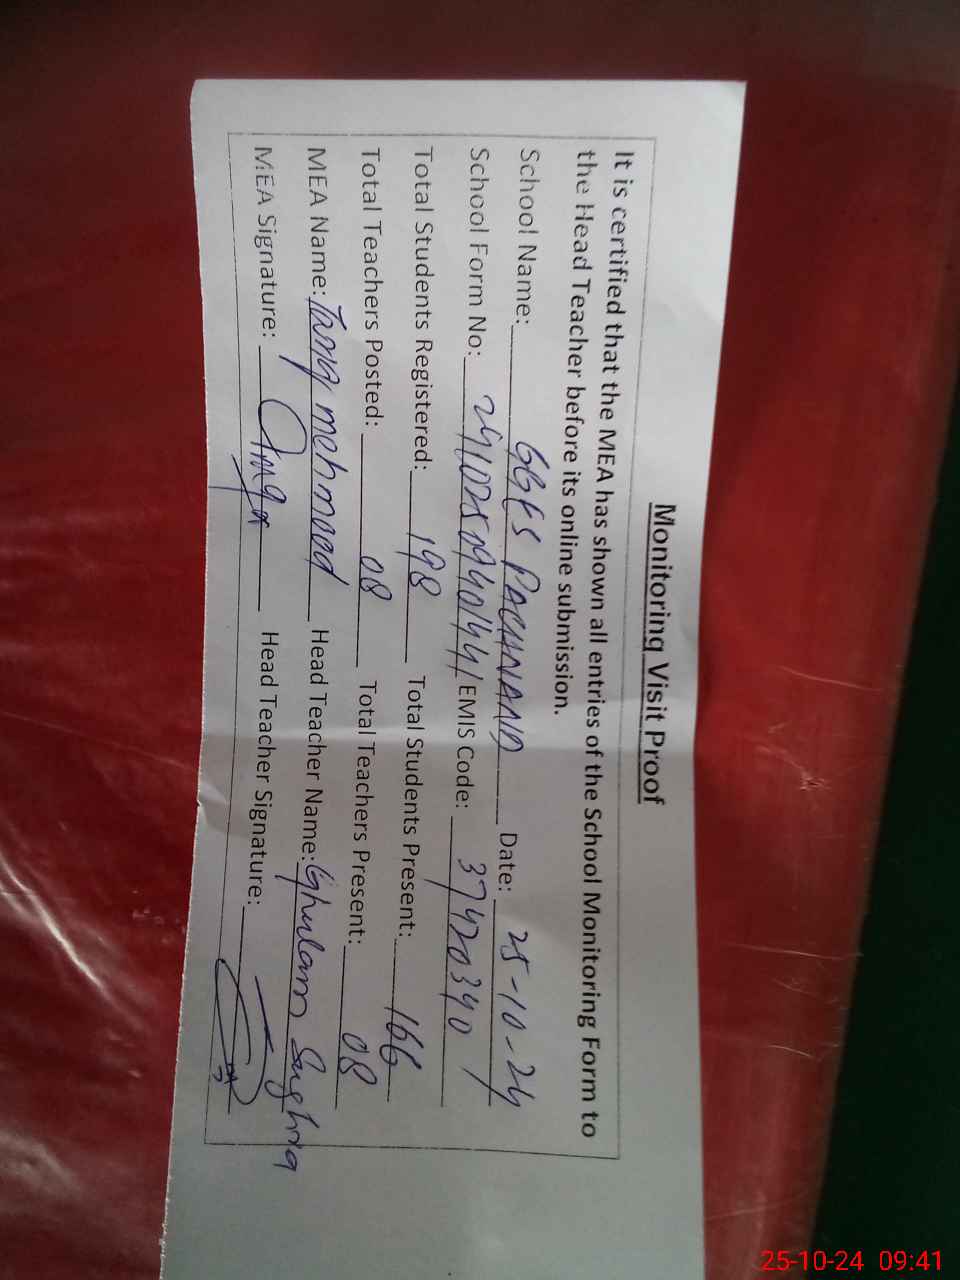 Monitoring Visit Proof
It is certified that the MEA has shown all entries of the School Monitoring Form to
the Head Teacher before its online submission.
School Name: GGES PACHNAND Date: 25-10-24
School Form No: EMIS Code: 37420340
Total Students Registered: 198 Total Students Present: 166
Total Teachers Posted: 08 Total Teachers Present: 08
MEA Name: Tariq mehmood Head Teacher Name: Ghulam Sughra
MEA Signature: Head Teacher Signature:
25-10-24 09:41